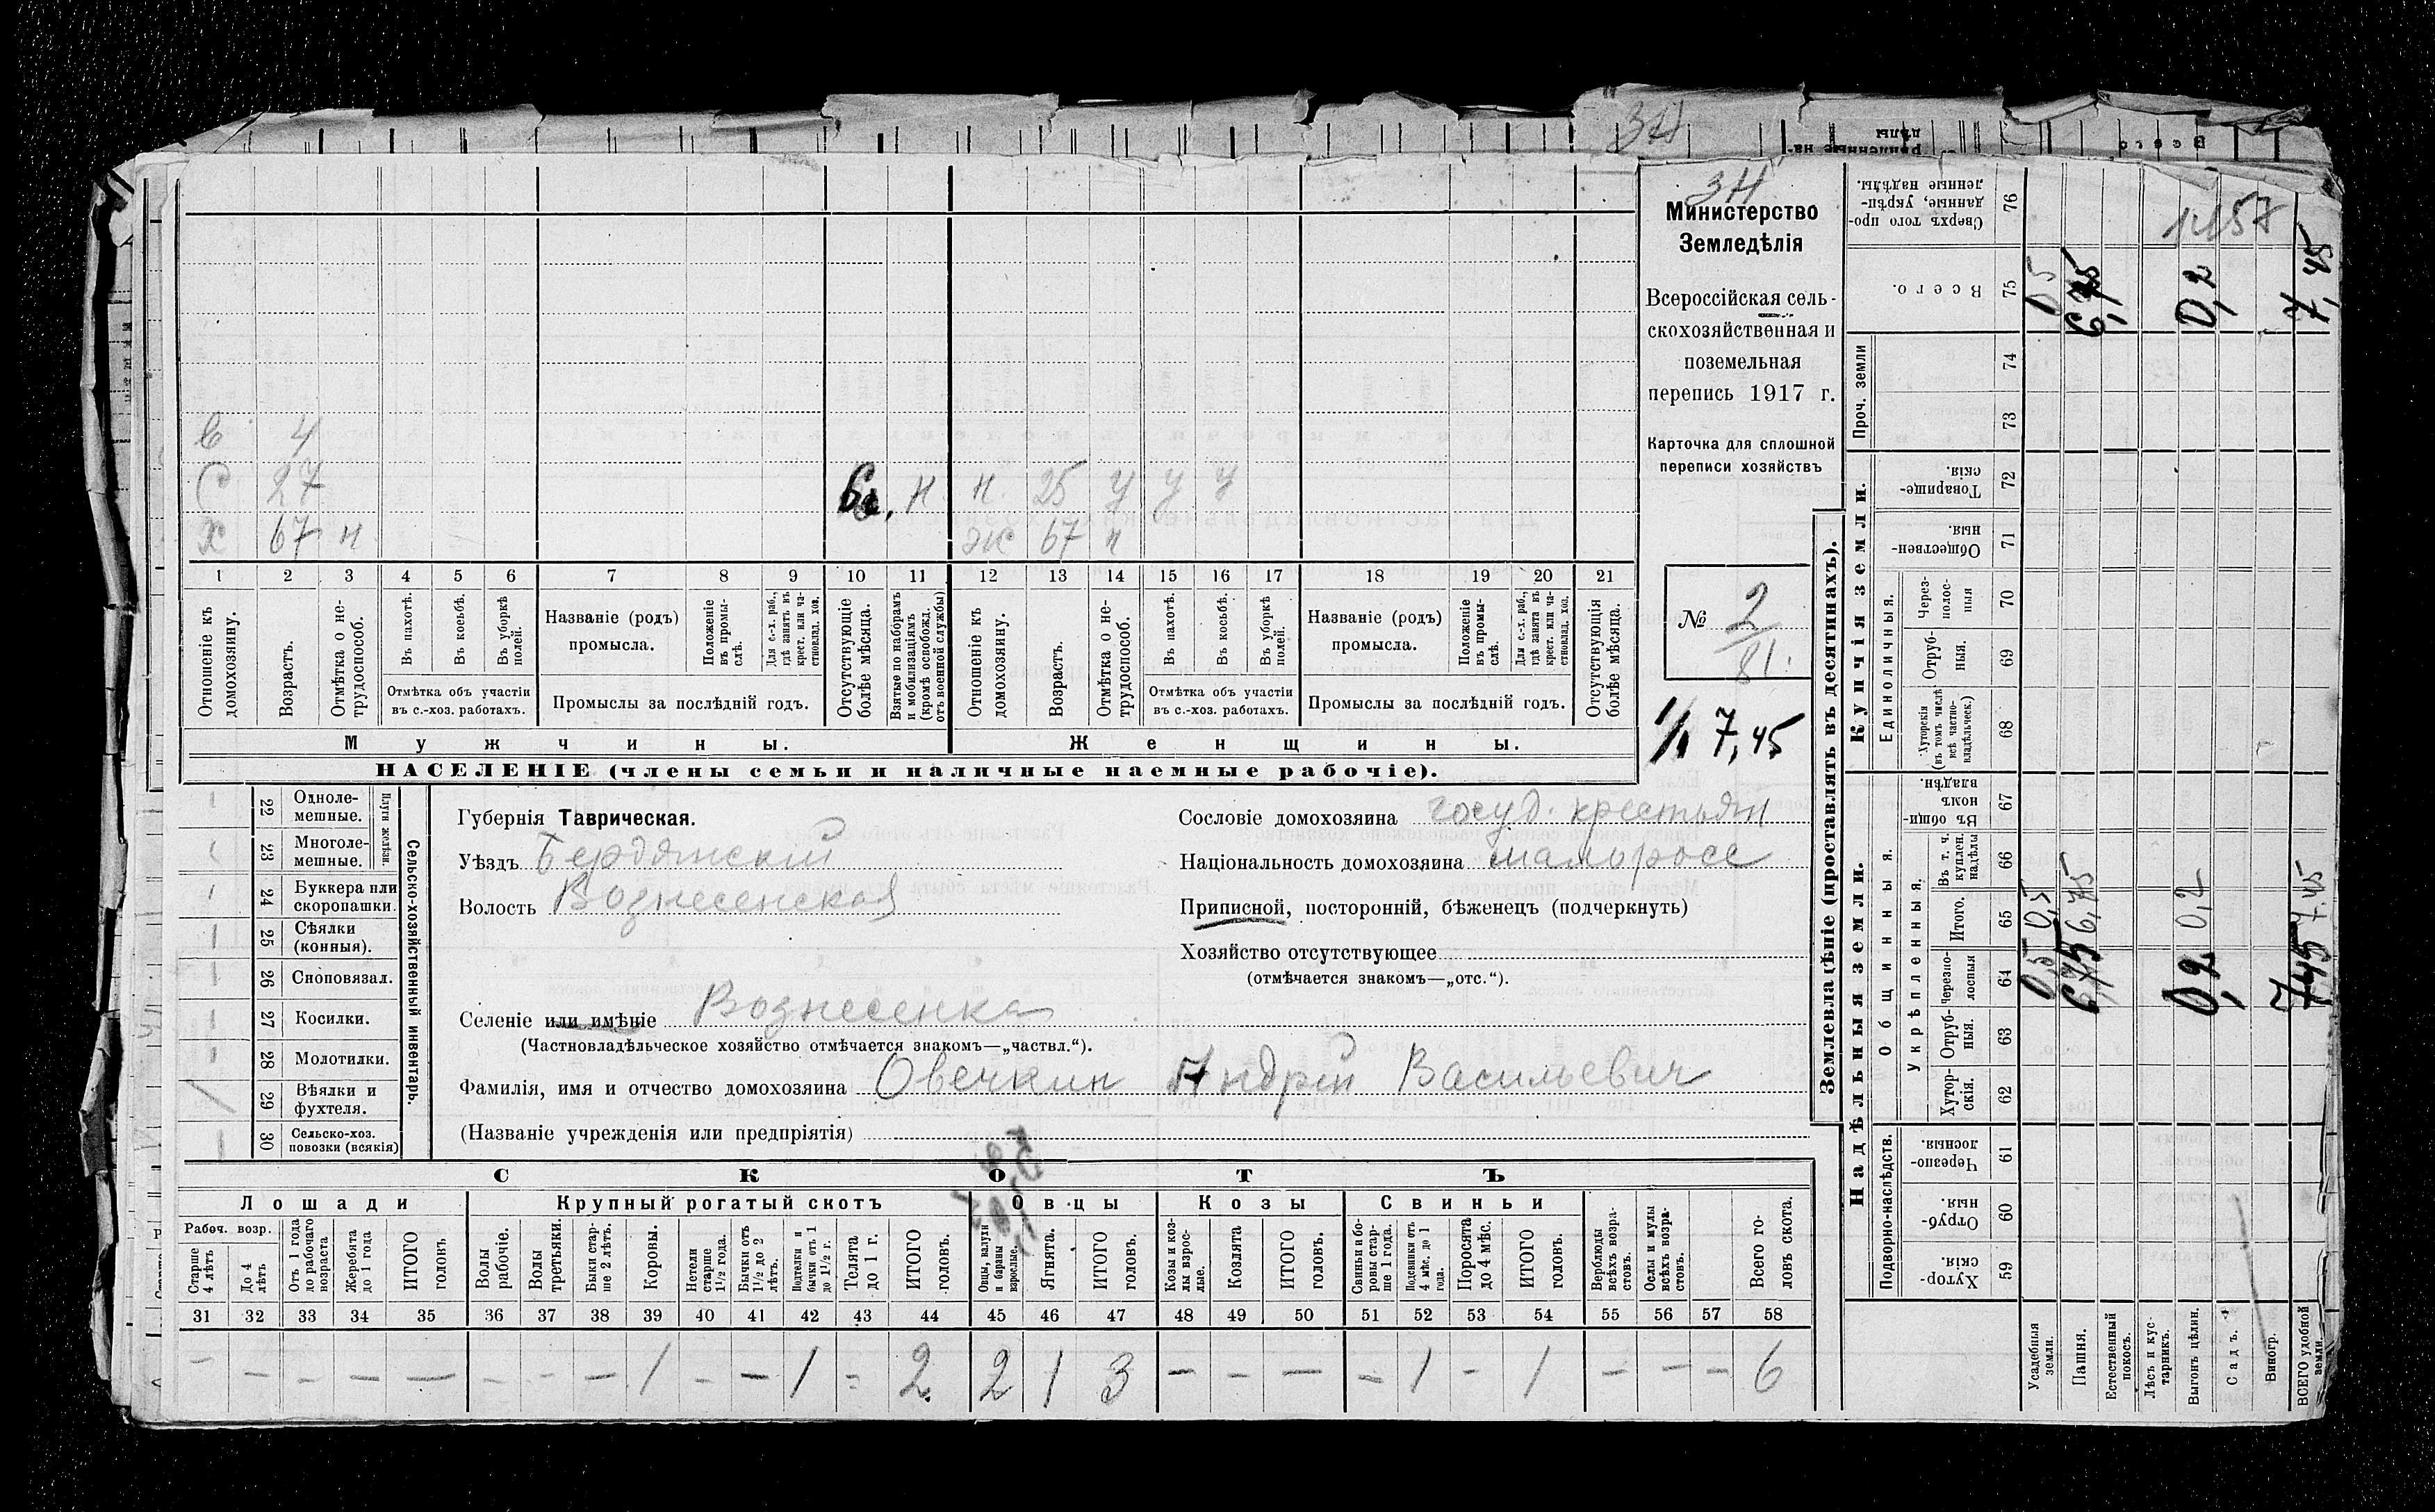 ЗН
Министерство
Земледѣлія
Всероссійская сель-
скохозяйственная и
поземельная
перепись 1917 г.
Карточка для сплошной
переписи хозяйствъ
№ 2
81.
1/1 7,45
В 4
С 27 Н Н. 25 У У У
Х 67 Н Ж 67 Н
1 2 3 4 5 6 7 8 9 10 11 12 13 14 15 16 17 18 19 20 21
Отношеніе къ домохозяину.
Возрастъ.
Отмѣтка о не-трудоспособ.
Въ пахотѣ.
Въ косьбѣ.
Въ уборкѣ полей.
Отмѣтка объ участіи
въ с.-хоз. работахъ.
Названіе (родъ)
промысла.
Положеніе въ промы-слѣ.
Для с.-х. раб., гдѣ занятъ въ крест. или ча-стновлад. хоз.
Промыслы за послѣдній годъ.
Отсутствующіе болѣе мѣсяца.
Взятые по наборамъ и мобилизаціямъ (кромѣ освобожд. отъ военной службы)
Отношеніе къ домохозяину.
Возрастъ.
Отмѣтка о не-трудоспособ.
Въ пахотѣ.
Въ косьбѣ.
Въ уборкѣ полей.
Отмѣтка объ участіи
въ с.-хоз. работахъ.
Названіе (родъ)
промысла.
Положеніе въ промы-слѣ.
Для с.-х. раб., гдѣ занятъ въ крест. или ча-стновлад. хоз.
Промыслы за послѣдній годъ.
Отсутствующія болѣе мѣсяца.
Мужчины. Женщины.
НАСЕЛЕНІЕ (члены семьи и наличные наемные рабочіе).
Сельско-хозяйственный инвентарь.
Плуги желѣзн.
22 Одноле-мешные.
23 Многоле-мешные.
24 Буккера или скоропашки.
25 Сѣялки (конныя).
26 Сноповязал.
27 Косилки.
28 Молотилки.
29 Вѣялки и фухтеля.
30 Сельско-хоз. повозки (всякія)
Губернія Таврическая.
Уѣздъ Бердянскій
Волость Вознесенская
Сословіе домохозяина госуд. крестьян
Національность домохозяина малоросс
Приписной, посторонній, бѣженецъ (подчеркнуть)
Хозяйство отсутствующее
(отмѣчается знакомъ—„отс.“).
Селеніе или имѣніе Вознесенка
(Частновладѣльческое хозяйство отмѣчается знакомъ—„частвл.“).
Фамилія, имя и отчество домохозяина Овечкин Андрій Васильевич
(Названіе учрежденія или предпріятія)
СКОТЪ
Лошади Крупный рогатый скотъ Овцы Козы Свиньи
Рабоч. возр.
Старше 4 лѣтъ
До 4 лѣтъ
Отъ 1 года до рабочаго возраста
Жеребята до 1 года
ИТОГО головъ
Волы рабочіе.
Волы третьяки.
Быки стар-ше 2 лѣтъ.
Коровы.
Нетели старше 1½ года.
Бычки отъ 1½ до 2 лѣтъ.
Подтелки и бычки отъ 1 до 1½ г.
Телята до 1 г.
ИТОГО головъ.
Овцы, валухи и бараны взрослые.
Ягнята.
ИТОГО головъ.
Козы и коз-лы взрос-лые.
Козлята
ИТОГО головъ.
Свиньи и бо-ровы стар-ше 1 года.
Подсвинки отъ 4 мѣс. до 1 года.
Поросята до 4 мѣс.
ИТОГО головъ.
Верблюды всѣхъ возра-стовъ.
Ослы и мулы всѣхъ возра-стовъ.
Всего го-ловъ скота.
31 32 33 34 35 36 37 38 39 40 41 42 43 44 45 46 47 48 49 50 51 52 53 54 55 56 57 58
- - - - - - - - 1 - - 1 - 2 2 1 3 - - - - 1 - 1 - - - 6
Землевладѣніе (проставлять въ десятинахъ).
Надѣльныя земли. Купчія земли.
Подворно-наслѣдств.
Общинныя.
Укрѣпленныя.
Единоличныя.
Проч. земли
59 Хутор-скія.
60 Отруб-ныя.
61 Черезпо-лосныя.
62 Хутор-скія.
63 Отруб-ныя.
64 Черезпо-лосныя
65 Итого.
66 Въ т. ч. куплен. надѣлы
67 Въ общи-номъ владѣн.
68 Хуторскія (въ томъ числѣ всѣ частно-владѣльческ.)
69 Отруб-ныя.
70 Через-полос-ныя
71 Обществен-ныя
72 Товарище-скія.
73
74
75 Всего.
76 Сверхъ того про-данные, укрѣп-ленные надѣлы.
Усадебная земля. 0,5 0,5 0,5
Пашня. 6,75 6,75 6,75
Естественный покосъ.
Лѣсъ и кус-тарникъ.
Выгонъ цѣлин. 0,2 0,2 0,2
Садъ.
Виногр.
ВСЕГО удобной земли. 7,45 7.45 7,45